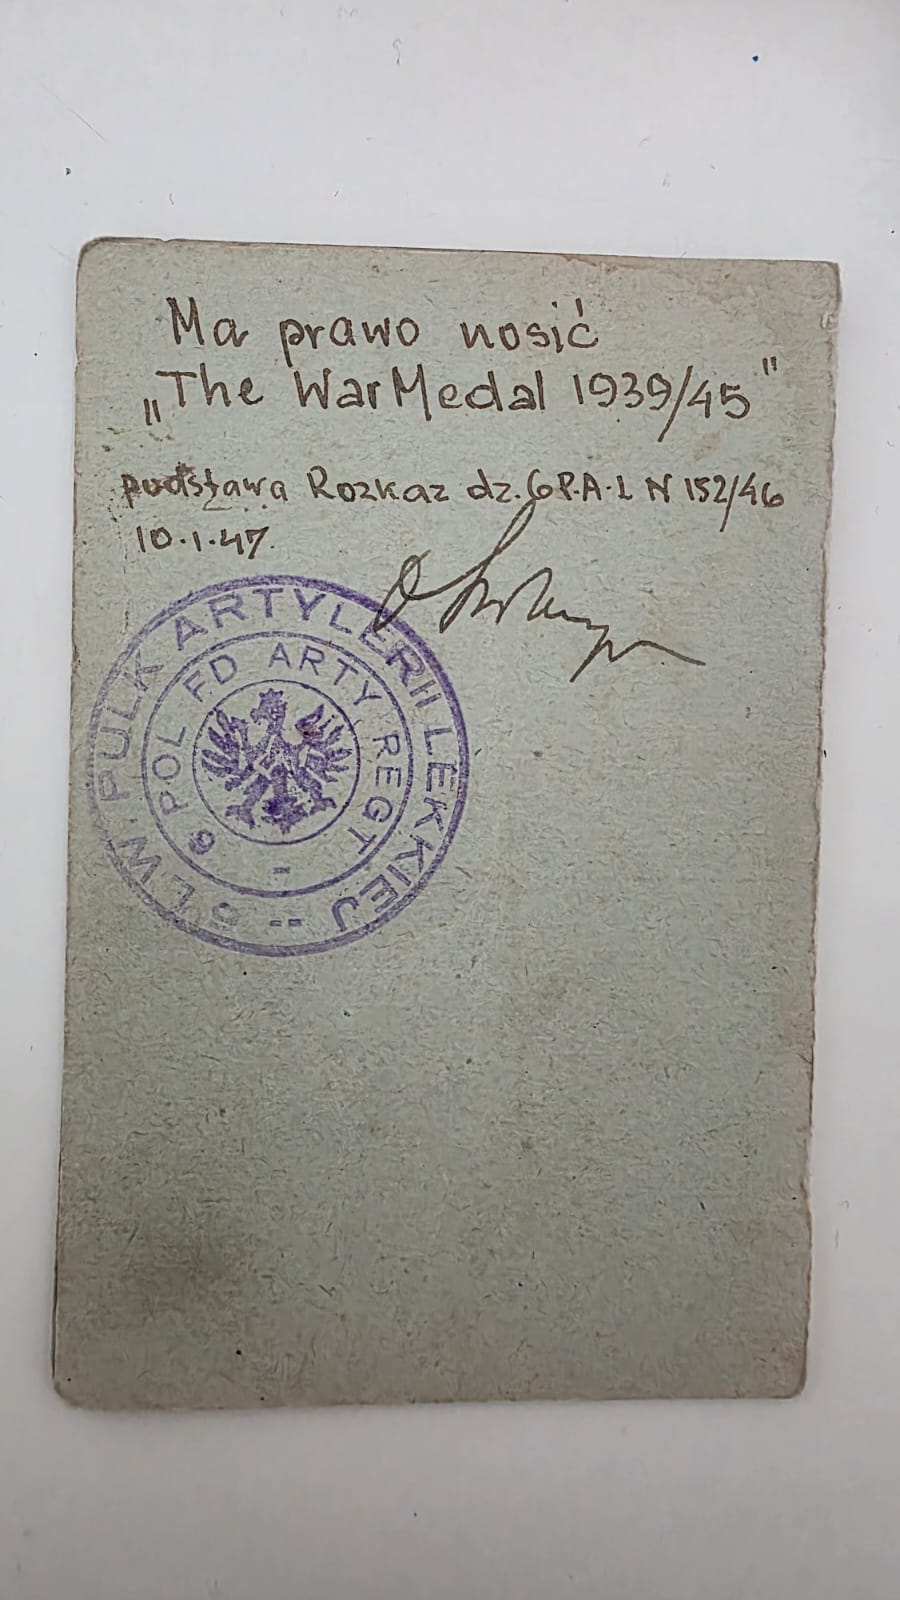 Ma prawo nosić
„The War Medal 1939/45"
podstawa Rozkaz dz. 6 P.A.L N 152/46
10.1.47.
6 LW. PUŁK ARTYLERII LEKKIEJ --
6 POL FD ARTY REGT -